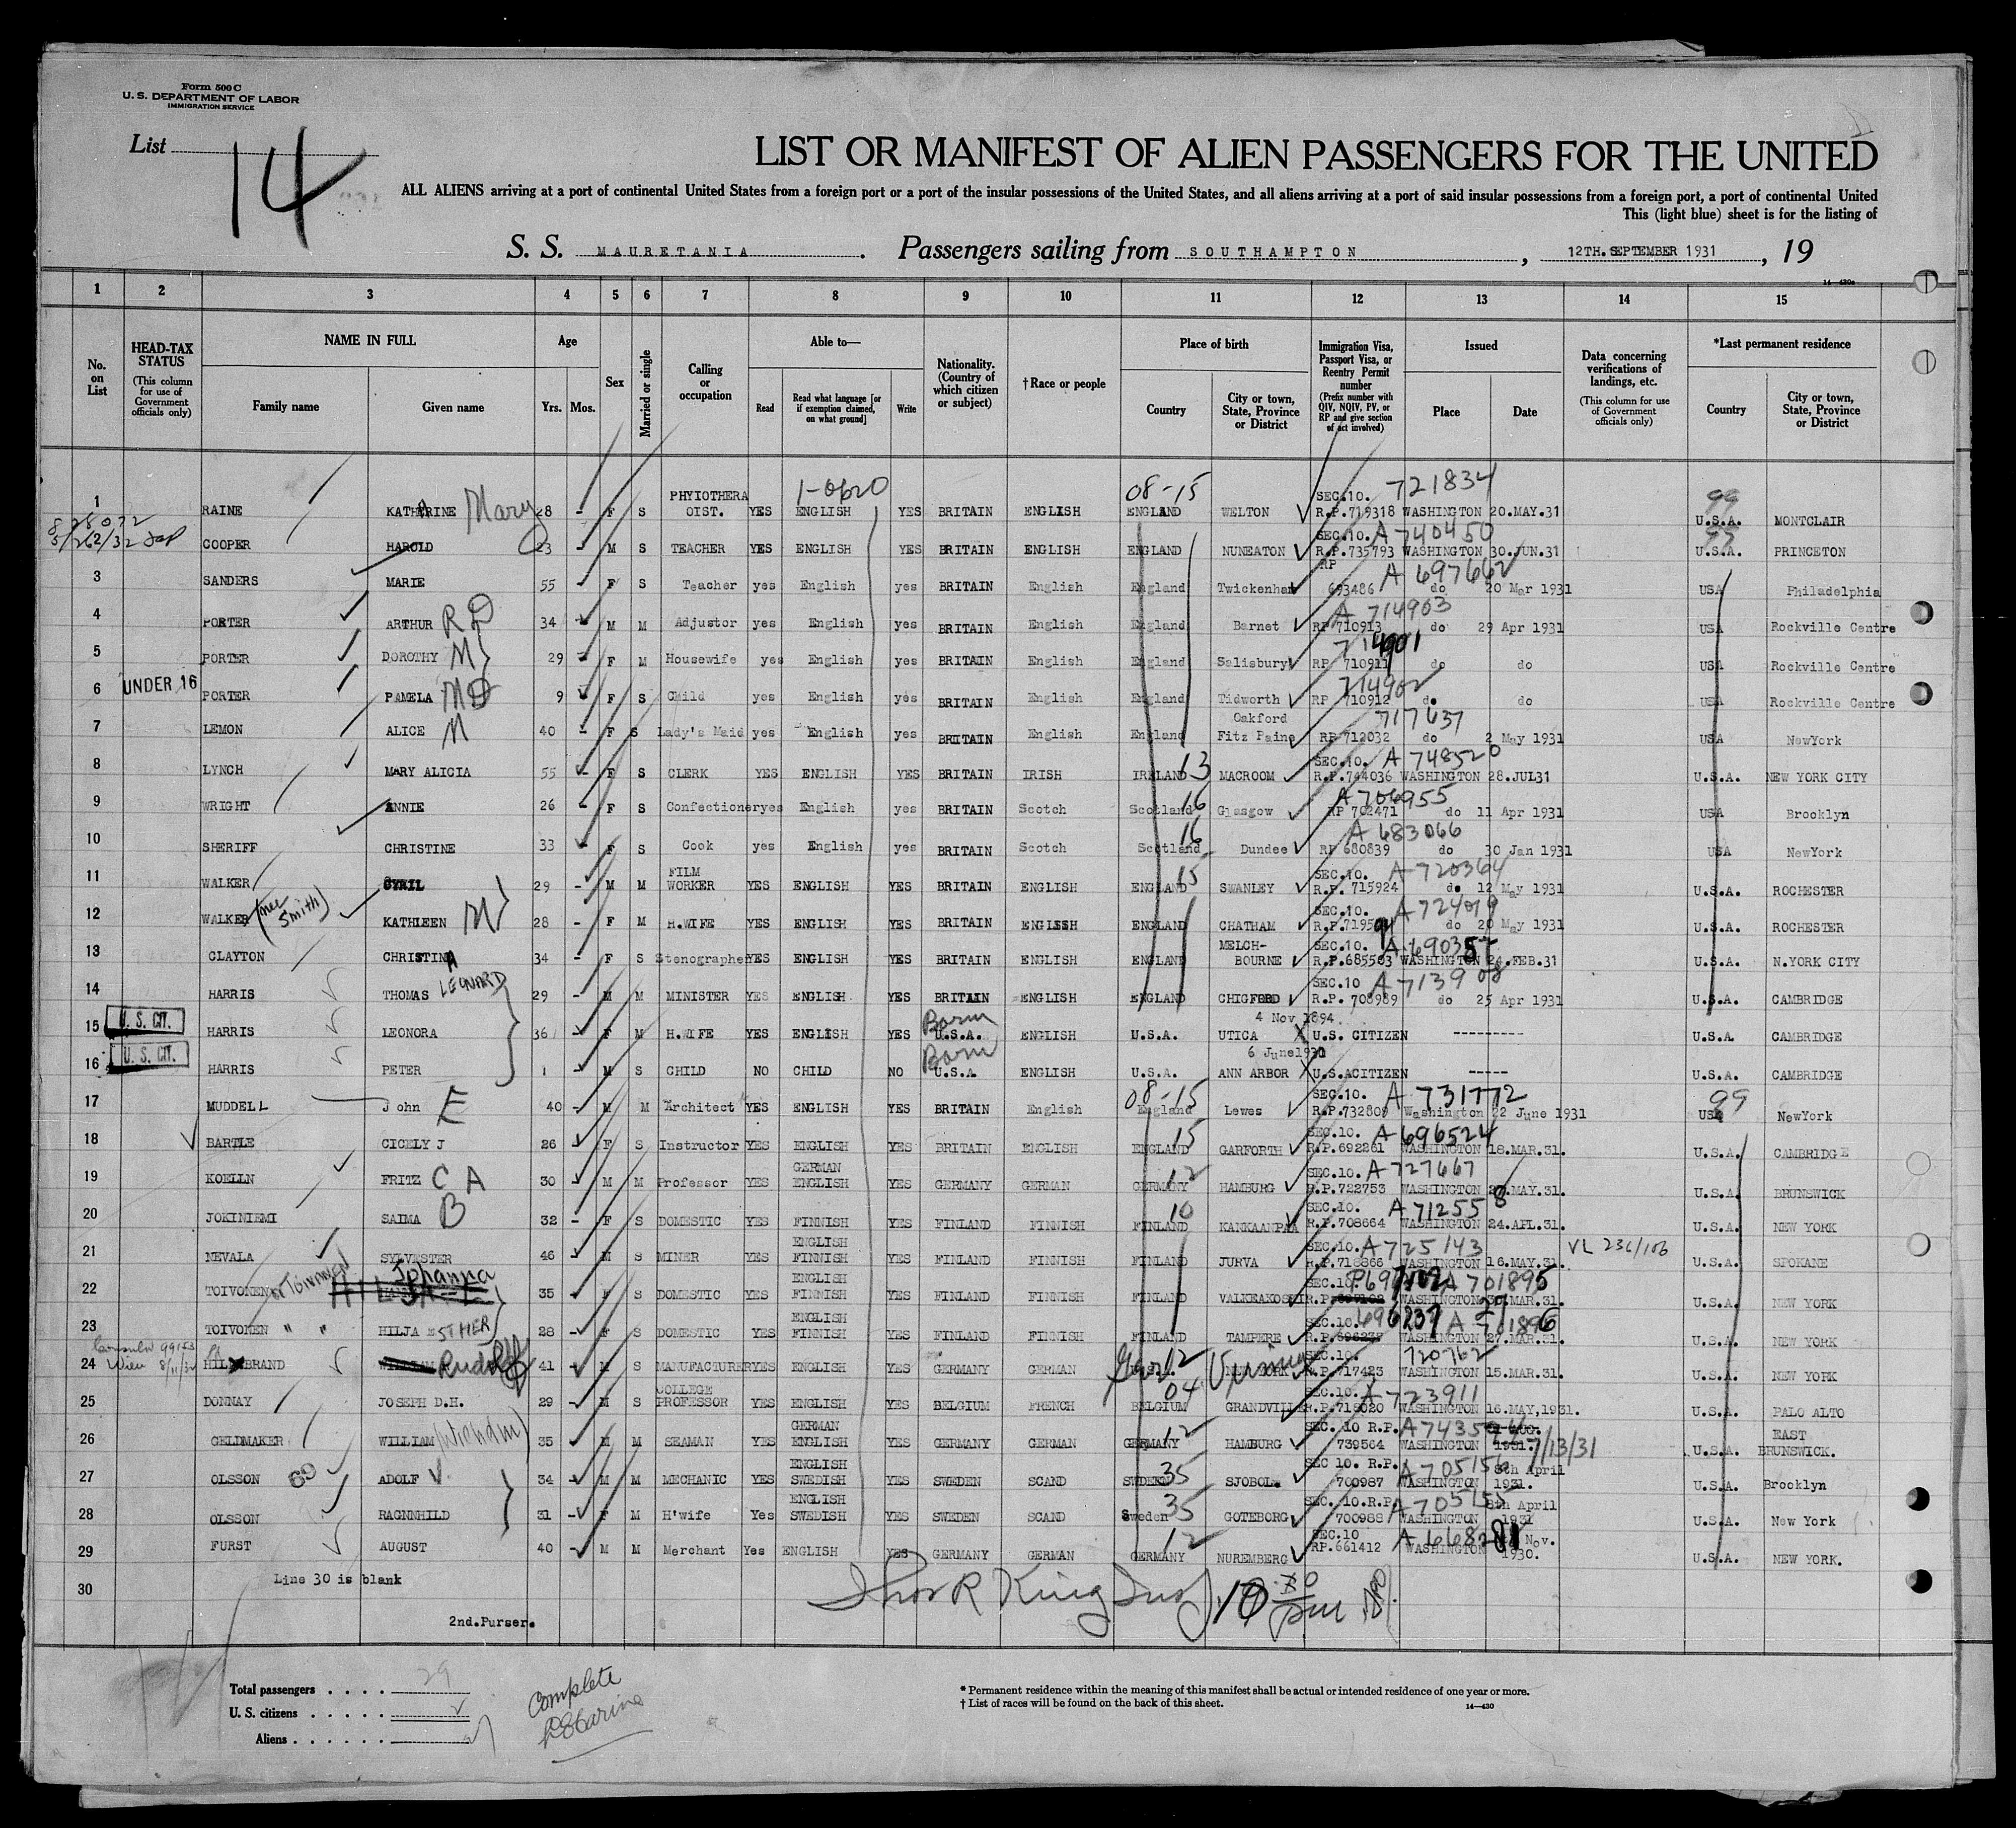 Form 500 C
U. S. DEPARTMENT OF LABOR
IMMIGRATION SERVICE
List 14
LIST OR MANIFEST OF ALIEN PASSENGERS FOR THE UNITED
ALL ALIENS arriving at a port of continental United States from a foreign port or a port of the insular possessions of the United States, and all aliens arriving at a port of said insular possessions from a foreign port, a port of continental United
This (light blue) sheet is for the listing of
S. S. MAURETANIA. Passengers sailing from SOUTHAMPTON, 12TH. SEPTEMBER 1931, 19
14—430a
1 2 3 4 5 6 7 8 9 10 11 12 13 14 15
No. on List
HEAD-TAX STATUS (This column for use of Government officials only)
NAME IN FULL
Family name Given name
Age
Yrs. Mos.
Sex
Married or single
Calling or occupation
Able to—
Read Read what language [or if exemption claimed, on what ground] Write
Nationality. (Country of which citizen or subject)
†Race or people
Place of birth
Country City or town, State, Province or District
Immigration Visa, Passport Visa, or Reentry Permit number (Prefix number with QIV, NQIV, PV, or RP and give section of act involved)
Issued
Place Date
Data concerning verifications of landings, etc. (This column for use of Government officials only)
*Last permanent residence
Country City or town, State, Province or District
1 RAINE KATHARINE Mary 28 - F S PHYIOTHERA OIST. YES ENGLISH YES BRITAIN ENGLISH 08-15 ENGLAND WELTON SEC.10. 721834 R.P.719318 WASHINGTON 20.MAY.31 99 U.S.A. MONTCLAIR
COOPER HAROLD 23 - M S TEACHER YES ENGLISH YES BRITAIN ENGLISH ENGLAND NUNEATON SEC.10. A 740450 R.P.735793 WASHINGTON 30.JUN.31 99 U.S.A. PRINCETON
3 SANDERS MARIE 55 F S Teacher yes English yes BRITAIN English England Twickenham RP A 697662 693486 do 20 Mar 1931 USA Philadelphia
4 PORTER ARTHUR R D 34 M M Adjustor yes English yes BRITAIN English England Barnet A 714903 RP 710913 do 29 Apr 1931 USA Rockville Centre
5 PORTER DOROTHY M 29 F M Housewife yes English yes BRITAIN English England Salisbury 714901 RP 710911 do do USA Rockville Centre
6 UNDER 16 PORTER PAMELA M D 9 F S Child yes English yes BRITAIN English England Tidworth 714902 RP 710912 do do USA Rockville Centre
7 LEMON ALICE M 40 - F S Lady's Maid yes English yes BRITAIN English England Oakford Fitz Paine 717637 RP 712032 do 2 May 1931 USA NewYork
8 LYNCH MARY ALICIA 55 - F S CLERK YES ENGLISH YES BRITAIN IRISH IRELAND 13 MACROOM SEC.10. A 748520 R.P.744036 WASHINGTON 28.JUL31 U.S.A. NEW YORK CITY
9 WRIGHT ANNIE 26 - F S Confectioner yes English yes BRITAIN Scotch Scotland 16 Glasgow A 706955 RP 702471 do 11 Apr 1931 USA Brooklyn
10 SHERIFF CHRISTINE 33 F S Cook yes English yes BRITAIN Scotch Scotland 16 Dundee A 683066 RP 680839 do 30 Jan 1931 USA NewYork
11 WALKER CYRIL 29 - M M FILM WORKER YES ENGLISH YES BRITAIN ENGLISH ENGLAND 15 SWANLEY SEC.10. A 720364 R.P. 715924 do 12 May 1931 U.S.A. ROCHESTER
12 WALKER (nee Smith) KATHLEEN M 28 - F M H.WIFE YES ENGLISH YES BRITAIN ENGLISH ENGLAND CHATHAM SEC.10. A 724019 R.P.719594 do 20 May 1931 U.S.A. ROCHESTER
13 CLAYTON CHRISTINA 34 - F S Stenographer YES ENGLISH YES BRITAIN ENGLISH ENGLAND MELCH-BOURNE SEC.10. A 690355 R.P.685503 WASHINGTON 24.FEB.31 U.S.A. N.YORK CITY
14 HARRIS THOMAS LEONARD 29 - M M MINISTER YES ENGLISH YES BRITAIN ENGLISH ENGLAND CHIGFORD SEC.10 A 713908 R.P. 708989 do 25 Apr 1931 U.S.A. CAMBRIDGE
15 U. S. CIT. HARRIS LEONORA 36 - F M H.WIFE YES ENGLISH YES Born U.S.A. ENGLISH U.S.A. 4 Nov 1894 UTICA X U.S. CITIZEN --------- U.S.A. CAMBRIDGE
16 U. S. CIT. HARRIS PETER 1 - M S CHILD NO CHILD NO Born U.S.A. ENGLISH U.S.A. 6 June1930 ANN ARBOR X U.S.ACITIZEN ----- U.S.A. CAMBRIDGE
17 MUDDELL John E 40 - M M Architect YES ENGLISH YES BRITAIN English 08-15 England Lewes SEC.10. A 731772 R.P.732809 Washington 22 June 1931 99 USA NewYork
18 BARTLE CICELY J 26 F S Instructor YES ENGLISH YES BRITAIN ENGLISH ENGLAND 15 GARFORTH SEC.10. A 696524 R.P.692261 WASHINGTON 18.MAR.31. U.S.A. CAMBRIDGE
19 KOELLN FRITZ C A 30 - M M Professor YES GERMAN ENGLISH YES GERMANY GERMAN GERMANY 12 HAMBURG SEC.10. A 727667 R.P.722753 WASHINGTON 28.MAY.31. U.S.A. BRUNSWICK
20 JOKINIEMI SAIMA B 32 - F S DOMESTIC YES FINNISH YES FINLAND FINNISH 10 FINLAND KANKAANPAA SEC.10. A 712558 R.P.708664 WASHINGTON 24.APL.31. U.S.A. NEW YORK
21 NEVALA SYLVESTER 46 M S MINER YES ENGLISH FINNISH YES FINLAND FINNISH FINLAND JURVA SEC.10. A 725143 R.P.718866 WASHINGTON 16.MAY.31. VL 236/106 U.S.A. SPOKANE
22 TOIVONEN or TOIVANEN Johanna 35 F S DOMESTIC YES ENGLISH FINNISH YES FINLAND FINNISH FINLAND VALKEAKOSKI SEC.10. A 701895 R.P. WASHINGTON MAR.31. U.S.A. NEW YORK
23 TOIVONEN " " HILJA ESTHER 28 - F S DOMESTIC YES ENGLISH FINNISH YES FINLAND FINNISH FINLAND TAMPERE SEC.10. 696237 A 701896 R.P. WASHINGTON 27.MAR.31. U.S.A. NEW YORK
24 HILDEBRAND Rudolf 41 M S MANUFACTURER YES ENGLISH YES GERMANY GERMAN 12 SEC.10. 720762 R.P.717423 WASHINGTON 15.MAR.31. U.S.A. NEW YORK
25 DONNAY JOSEPH D.H. 29 - M S COLLEGE PROFESSOR YES ENGLISH YES BELGIUM FRENCH 04 BELGIUM GRANDVILLE SEC.10. A 723911 R.P.718020 WASHINGTON 16.MAY,1931. U.S.A. PALO ALTO
26 GELDMAKER WILLIAM 35 M M SEAMAN YES GERMAN ENGLISH YES GERMANY GERMAN GERMANY 12 HAMBURG SEC. 10 R.P. 739564 WASHINGTON 1931. 7/13/31 U.S.A. EAST BRUNSWICK.
27 OLSSON 69 ADOLF V. 34 M M MECHANIC YES ENGLISH SWEDISH YES SWEDEN SCAND SWEDEN 35 SJOBOL. SEC 10. R.P. A 705156 700987 WASHINGTON 8th April 1931. U.S.A. Brooklyn
28 OLSSON RAGNNHILD 31 - F M H'wife Yes ENGLISH SWEDISH YES SWEDEN SCAND Sweden 35 GOTEBORG SEC. 10.R.P. A 705155 700988 WASHINGTON 8th April 1931 U.S.A. New York
29 FURST AUGUST 40 - M M Merchant Yes ENGLISH YES GERMANY GERMAN GERMANY 12 NUREMBERG SEC.10 RP.661412 WASHINGTON Nov. 1930. U.S.A. NEW YORK.
30 Line 30 is blank
2nd.Purser.
Total passengers . . . . 29
U. S. citizens . . . . .
Aliens . . . . . .
Complete
* Permanent residence within the meaning of this manifest shall be actual or intended residence of one year or more.
† List of races will be found on the back of this sheet.
14—430